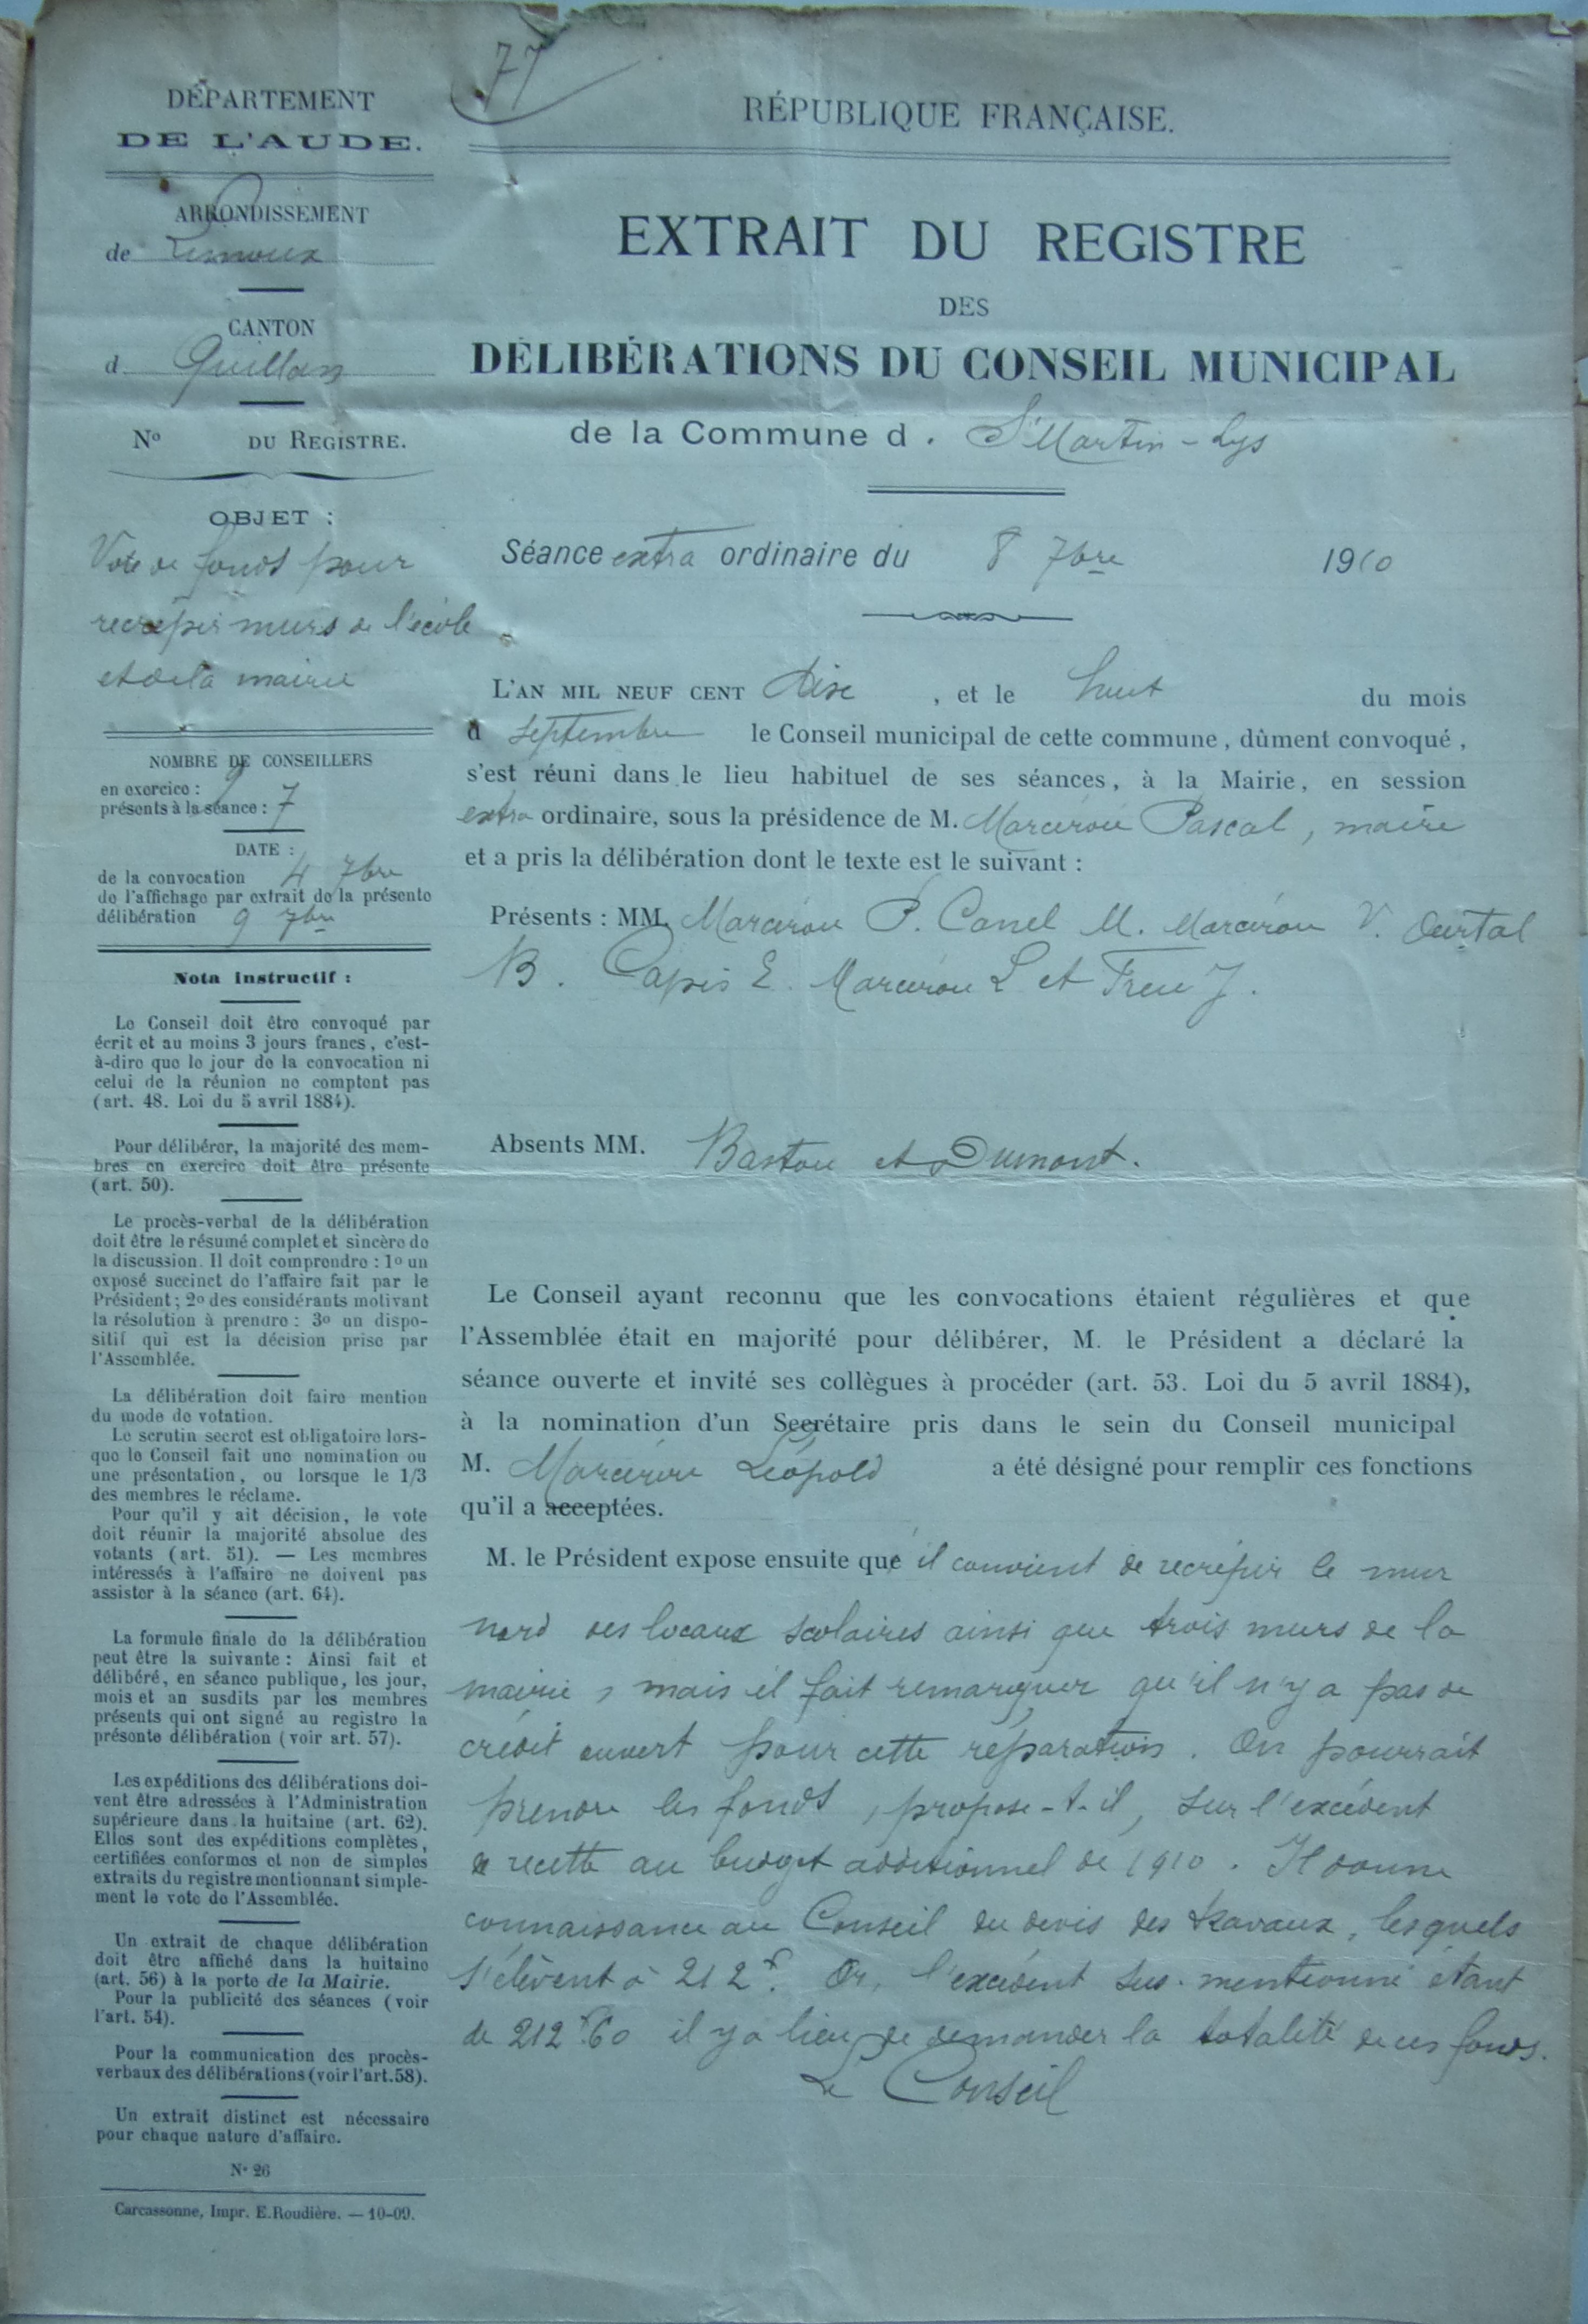 77
DÉPARTEMENT
DE L'AUDE.
ARRONDISSEMENT
de Limoux
CANTON
d Quillan
No DU REGISTRE.
OBJET :
Vote de fonds pour
recrépir murs de l'école
et de la mairie
NOMBRE DE CONSEILLERS
en exercice : 9
présents à la séance : 7
DATE :
de la convocation 4 7bre
de l'affichage par extrait de la présente
délibération 9 7bre
Nota instructif :
Le Conseil doit être convoqué par
écrit et au moins 3 jours francs, c'est-
à-dire que le jour de la convocation ni
celui de la réunion ne comptent pas
(art. 48. Loi du 5 avril 1884).
Pour délibérer, la majorité des mem-
bres en exercice doit être présente
(art. 50).
Le procès-verbal de la délibération
doit être le résumé complet et sincère de
la discussion. Il doit comprendre : 1o un
exposé succinct de l'affaire fait par le
Président ; 2o des considérants motivant
la résolution à prendre : 3o un dispo-
sitif qui est la décision prise par
l'Assemblée.
La délibération doit faire mention
du mode de votation.
Le scrutin secret est obligatoire lors-
que le Conseil fait une nomination ou
une présentation, ou lorsque le 1/3
des membres le réclame.
Pour qu'il y ait décision, le vote
doit réunir la majorité absolue des
votants (art. 51). — Les membres
intéressés à l'affaire ne doivent pas
assister à la séance (art. 64).
La formule finale de la délibération
peut être la suivante : Ainsi fait et
délibéré, en séance publique, les jour,
mois et an susdits par les membres
présents qui ont signé au registre la
présente délibération (voir art. 57).
Les expéditions des délibérations doi-
vent être adressées à l'Administration
supérieure dans la huitaine (art. 62).
Elles sont des expéditions complètes,
certifiées conformes et non de simples
extraits du registre mentionnant simple-
ment le vote de l'Assemblée.
Un extrait de chaque délibération
doit être affiché dans la huitaine
(art. 56) à la porte de la Mairie.
Pour la publicité des séances (voir
l'art. 54).
Pour la communication des procès-
verbaux des délibérations (voir l'art. 58).
Un extrait distinct est nécessaire
pour chaque nature d'affaire.
No 26
Carcassonne, Impr. E. Roudière. — 10-09.
RÉPUBLIQUE FRANÇAISE.
EXTRAIT DU REGISTRE
DES
DÉLIBÉRATIONS DU CONSEIL MUNICIPAL
de la Commune d. St Martin-Lys
Séance extra ordinaire du 8 7bre 1910
L'AN MIL NEUF CENT dix, et le huit du mois
d septembre le Conseil municipal de cette commune, dûment convoqué,
s'est réuni dans le lieu habituel de ses séances, à la Mairie, en session
extra ordinaire, sous la présidence de M. Marcérou Pascal, maire
et a pris la délibération dont le texte est le suivant :
Présents : MM. Marcérou P. Canel M. Marcérou V. Ourtal
B. Capis E. Marcérou L et Freu J.
Absents MM. Bastou et Dumont.
Le Conseil ayant reconnu que les convocations étaient régulières et que
l'Assemblée était en majorité pour délibérer, M. le Président a déclaré la
séance ouverte et invité ses collègues à procéder (art. 53. Loi du 5 avril 1884),
à la nomination d'un Secrétaire pris dans le sein du Conseil municipal
M. Marcérou Léopold a été désigné pour remplir ces fonctions
qu'il a acceptées.
M. le Président expose ensuite qu'il convient de recrépir le mur
nord des locaux scolaires ainsi que trois murs de la
mairie, mais il fait remarquer qu'il n'y a pas de
crédit ouvert pour cette réparation. On pourrait
prendre les fonds, propose-t-il, sur l'excédent
de recette au budget additionnel de 1910. Il donne
connaissance au Conseil du devis des travaux, lesquels
s'élèvent à 212f. Or, l'excédent sus-mentionné étant
de 212f.60 il y a lieu de demander la totalité de ces fonds.
Le Conseil